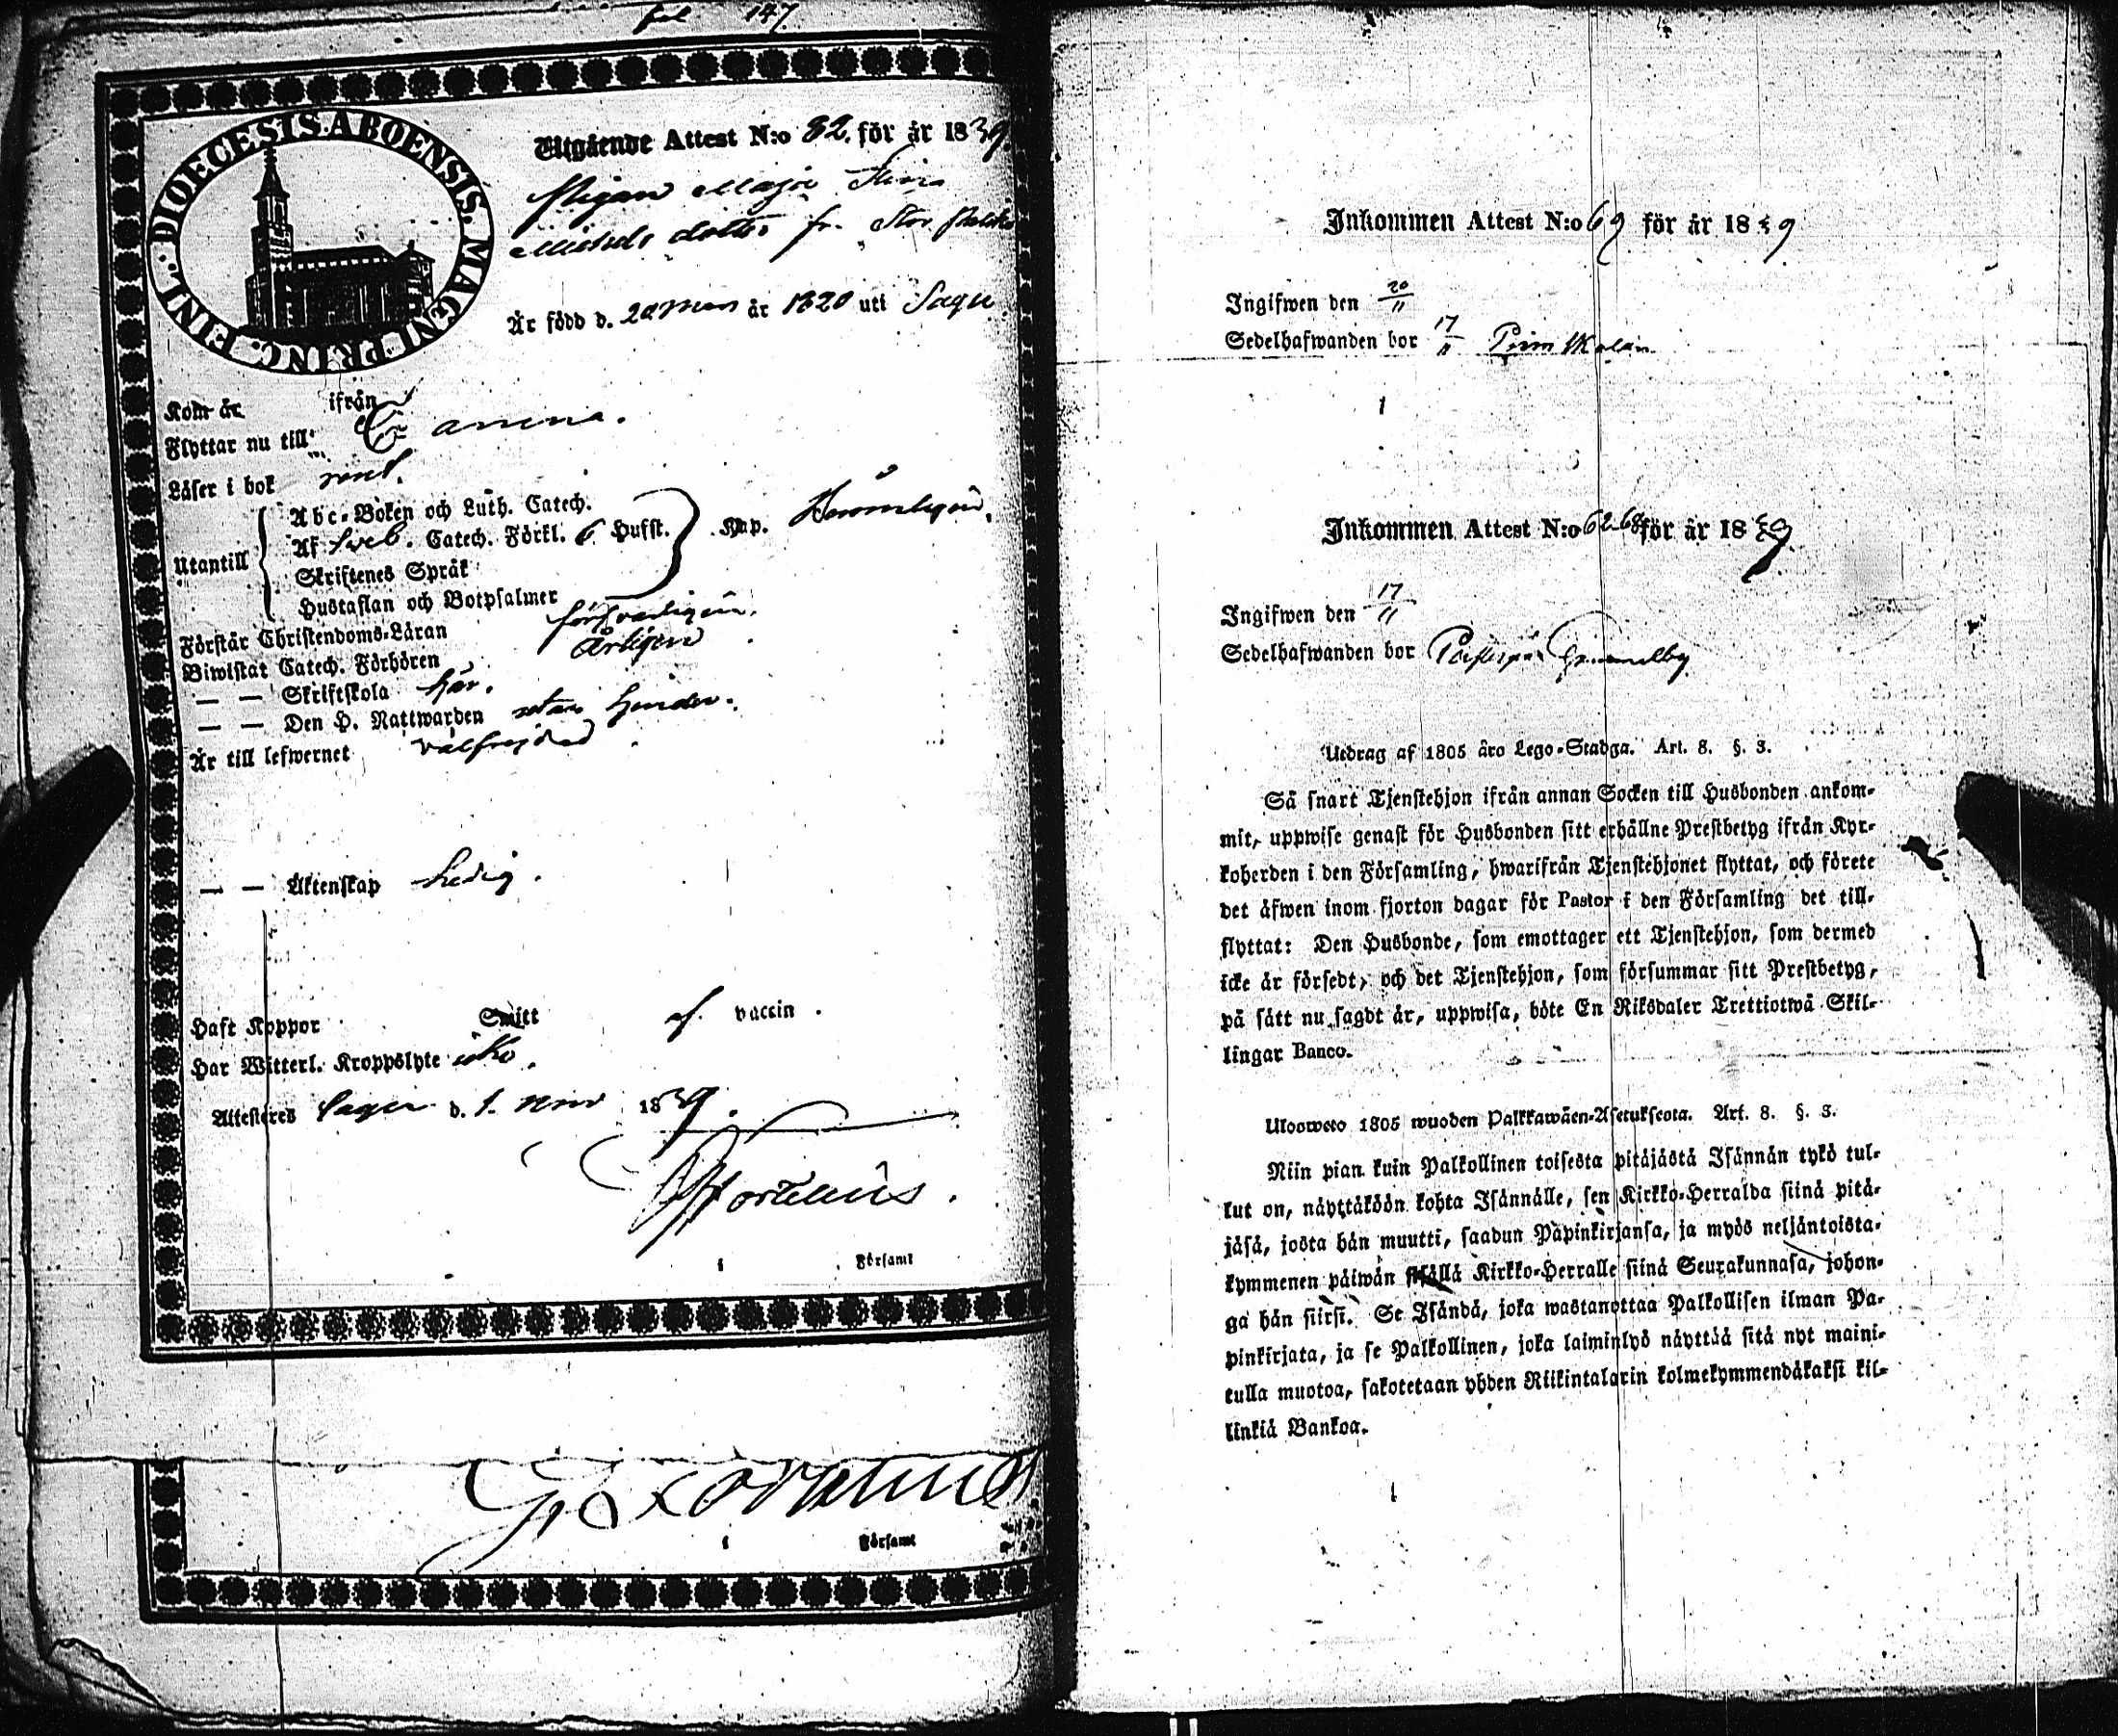 fol 147
DIOECESIS ABOENSIS. MAGNI PRINC. FINL.
Utgående Attest N:o 82. för år 1839.
Pigan Maja Stina
Michels dotter fr. Stor
Är född d. 20 Mars år 1820 uti Sagu
Kom år ifrån
Flyttar nu till
Läser i bok rent.
Utantill
Abc-Boken och Luth. Catech.
Af Sveb. Catech. Förkl. 6 Hufst.
Skriftenes Språk
Hustaflan och Botpsalmer
Förstår Christendoms-Läran försvarligen.
Biwistat Catech. Förhören Årligen
— — Skriftskola här.
— — Den H. Nattwarden utan hinder.
Är till lefwernet välfrejdad
— — Äktenskap Ledig.
Haft Koppor Smitt af vaccin.
Har Witterl. Kroppslyte icke.
Attesteres Sagu d. 1. Nov 1839.
i Församl
i Församl
Inkommen Attest N:o 69 för år 1839
Ingifwen den 20/11
Sedelhafwanden bor 17/11
Inkommen Attest N:o 62-68 för år 1839
Ingifwen den 17/11
Sedelhafwanden bor
Utdrag af 1805 års Lego-Stadga. Art. 8. §. 3.
Så snart Tjenstehjon ifrån annan Socken till Husbonden ankom-
mit, uppwise genast för Husbonden sitt erhållne Prestbetyg ifrån Kyr-
koherden i den Församling, hwarifrån Tjenstehjonet flyttat, och förete
det äfwen inom fjorton dagar för Pastor i den Församling det till-
flyttat: Den Husbonde, som emottager ett Tjenstehjon, som dermed
icke är försedt, och det Tjenstehjon, som försummar sitt Prestbetyg,
på sätt nu sagdt är, uppwisa, böte En Riksdaler Trettiotwå Skil-
lingar Banco.
Uloswcto 1805 wuoden Palkkawäen-Asetuksesta. Art. 8. §. 3.
Niin pian kuin Palkollinen toisesta pitäjästä Isännän tykö tul-
lut on, näyttäköön kohta Isännälle, sen Kirkko-Herralda siinä pitä-
jäsä, josta hän muutti, saadun Papinkirjansa, ja myös neljäntoista-
kymmenen päiwän sisällä Kirkko-Herralle siinä Seurakunnasa, johon-
ga hän siirsi. Se Isändä, joka wastanottaa Palkollisen ilman Pa-
pinkirjata, ja se Palkollinen, joka laiminlyö näyttää sitä nyt maini-
tulla muotoa, sakotetaan yhden Riikintalarin kolmekymmendäkaksi kil-
linkiä Bankoa.